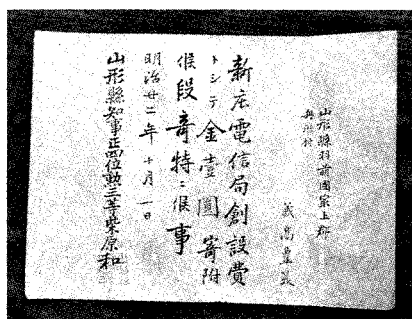 山形縣羽前國最上郡
新庄電信局創設費
トシテ金壹圓寄附
候段奇特ニ候事
明治廿二年十月一日
山形縣知事正四位勳三等柴原和